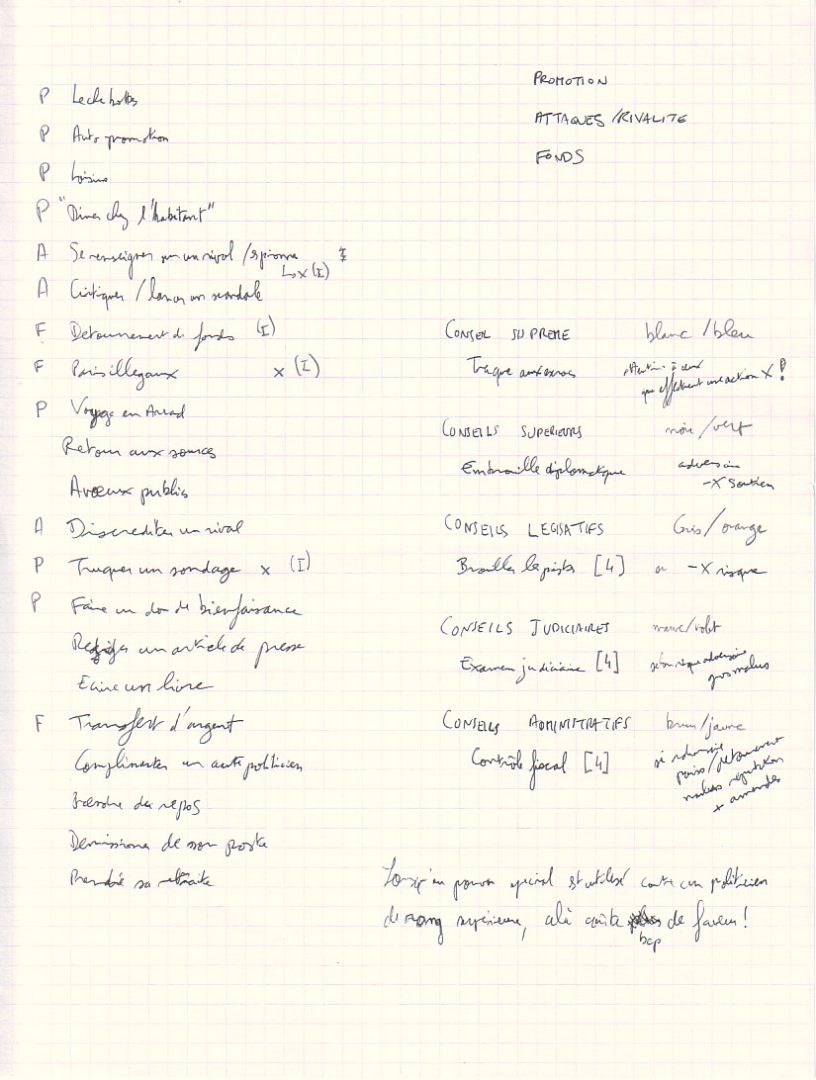 PROMOTION
ATTAQUES / RIVALITE
FONDS
P Leche bottes
P Auto promotion
P Loisirs
P "Diner chez l'habitant"
A Se renseigner sur un rival / espionne
↳ x (I)
A Critiquer / lancer un scandale
F Detournement de fonds (I)
F Paris illegaux x (I)
P Voyage en
Retour aux sources
Aveux publics
A Discrediter un rival
P Truquer un sondage x (I)
P Faire un don de bienfaisance
Rediger un article de presse
Ecrire un livre
F Transfert d'argent
Complimenter un autre politicien
Prendre du repos
Demissionner de son poste
Prendre sa retraite
CONSEIL SUPREME blanc / bleu
Traque
que effectuent une action X !
CONSEILS SUPERIEURS noir / vert
Embrouille diplomatique adversaire
-X soutien
CONSEILS LEGISATIFS Gris / orange
Brouiller les pistes [4] -X risque
CONSEILS JUDICIAIRES mauve / violet
Examen judiciaire [4] selon risque adversaire
gros malus
CONSEILS ADMINISTRATIFS brun / jaune
Contrôle fiscal [4] si
paris / detournement
malus reputation
+ amendes
Lorsqu'un pouvoir special est utilisé contre un politicien
de rang supérieur, cela coûte bcp de faveur !